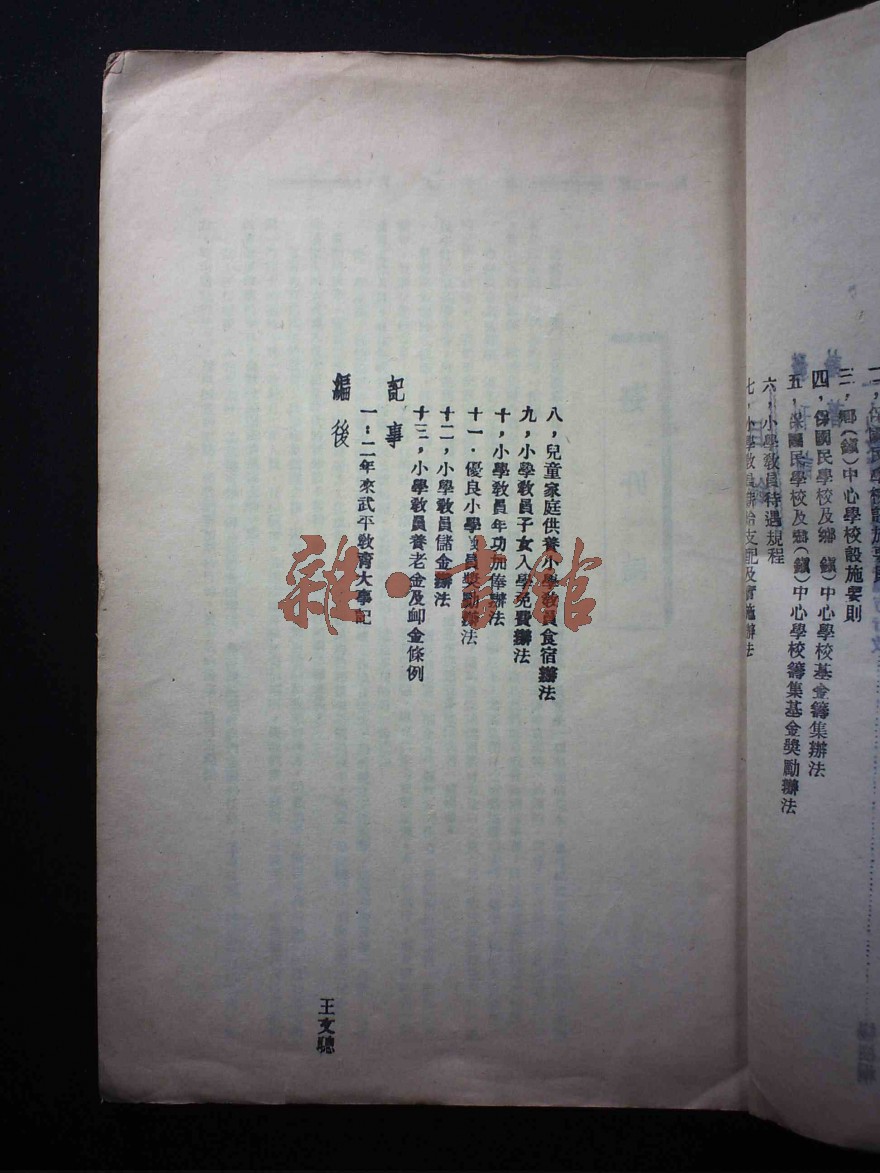 三，鄉（鎮）中心學校設施要則
四，保國民學校及鄉 鎮）中心學校基金籌集辦法
五，保國民學校及鄉（鎮）中心學校籌集基金獎勵辦法
六，小學敎員待遇規程
七，小學敎員薪給支配及實施辦法
八，兒童家庭供養小學敎員食宿辦法
九，小學敎員子女入學免費辦法
十，小學敎員年功加俸辦法
十一．優良小學 員獎勵辦法
十二，小學敎員儲金辦法
十三，小學敎員養老金及卹金條例
記事
一：二年來武平敎育大事記
編後
王文聰
雜·書館